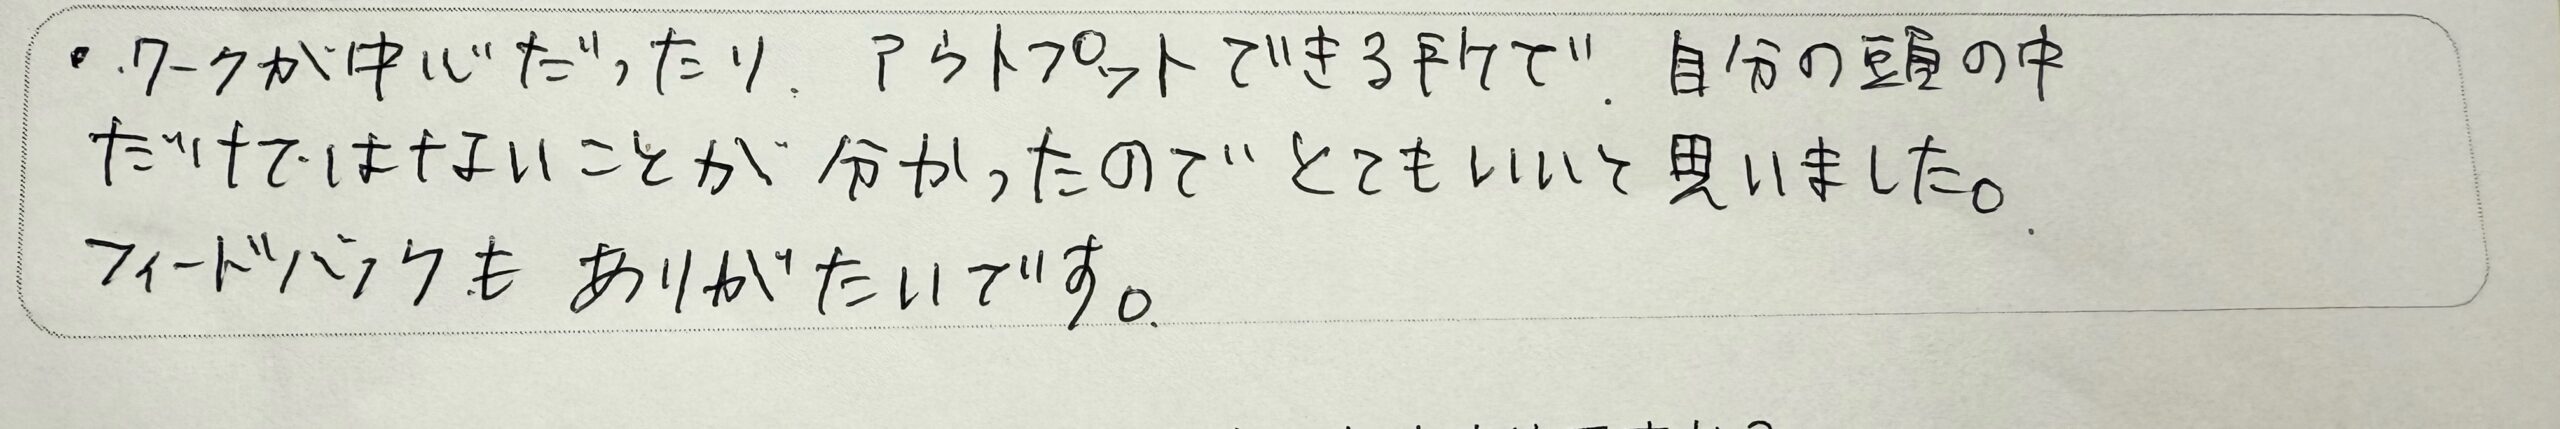 ・ワークが中心だったり、アウトプットできる所で、自分の頭の中
だけではないことが分かったのでとてもいいと思いました。
フィードバックもありがたいです。